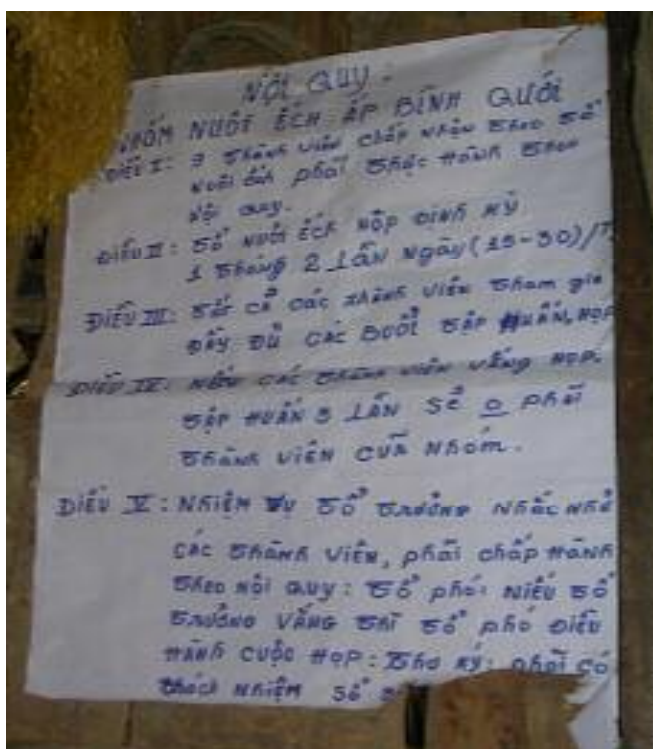 NỘI QUY:
NHÓM NUÔI ẾCH ẤP BÌNH QUỚI
ĐIỀU I: 3 thành viên chấp nhận theo tổ
nuôi ếch phải thực hành theo
nội quy.
ĐIỀU II: Tổ nuôi ếch họp định kỳ
1 tháng 2 lần ngày (15-30)/T
ĐIỀU III: tất cả các thành viên tham gia
đầy đủ các buổi tập huấn, họp
ĐIỀU IV: nếu các thành viên vắng họp,
tập huấn 3 lần sẽ o phải
thành viên của nhóm.
ĐIỀU V: Nhiệm vụ tổ trưởng nhắc nhở
các thành viên, phải chấp hành
theo nội quy: tổ phó: niếu tổ
trưởng vắng thì tổ phó điều
hành cuộc họp: Thơ ký: phải có
trách nhiệm sổ